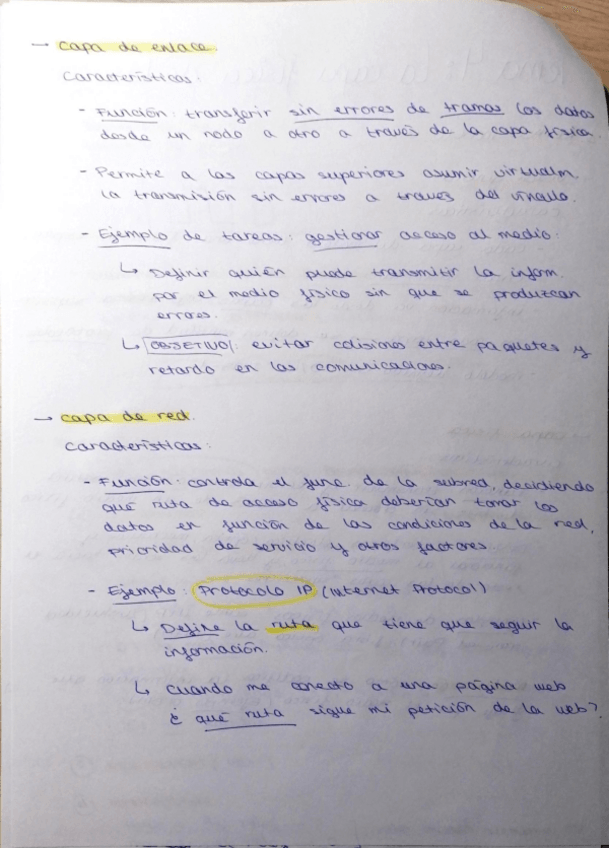 → Capa de enlace.
Características:
- Función: transferir sin errores de tramas los datos
desde un nodo a otro a través de la capa física.
- Permite a las capas superiores asumir virtualm.
la transmisión sin errores a través del vínculo.
- Ejemplo de tareas: gestionar acceso al medio.
↳ Definir quién puede transmitir la inform.
por el medio físico sin que se produzcan
errores.
↳ OBJETIVO: evitar colisiones entre paquetes y
retardo en las comunicaciones.
→ capa de red.
características:
- Función: controla el func. de la subred, decidiendo
qué ruta de acceso física deberían tomar los
datos en función de las condiciones de la red,
prioridad de servicio y otros factores.
- Ejemplo: Protocolo IP (Internet Protocol)
↳ Define la ruta que tiene que seguir la
información.
↳ Cuando me conecto a una página web
¿ qué ruta sigue mi petición de la web?